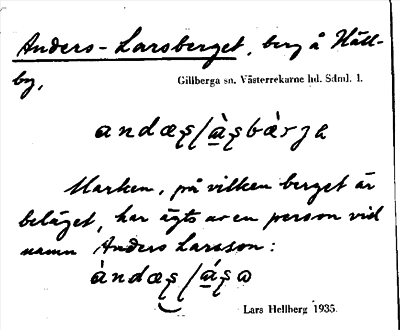 Anders-Larsberget, berg å Häll-
by,
Gillberga sn. Västerrekarne hd. Sdml. 1.
andæʂ/à̱ʂbærjə
Marken, på vilken berget är
beläget, har ägts av en person vid
namn Anders Larsson:
àndæʂ/á̱ʂɷ
Lars Hellberg 1935.